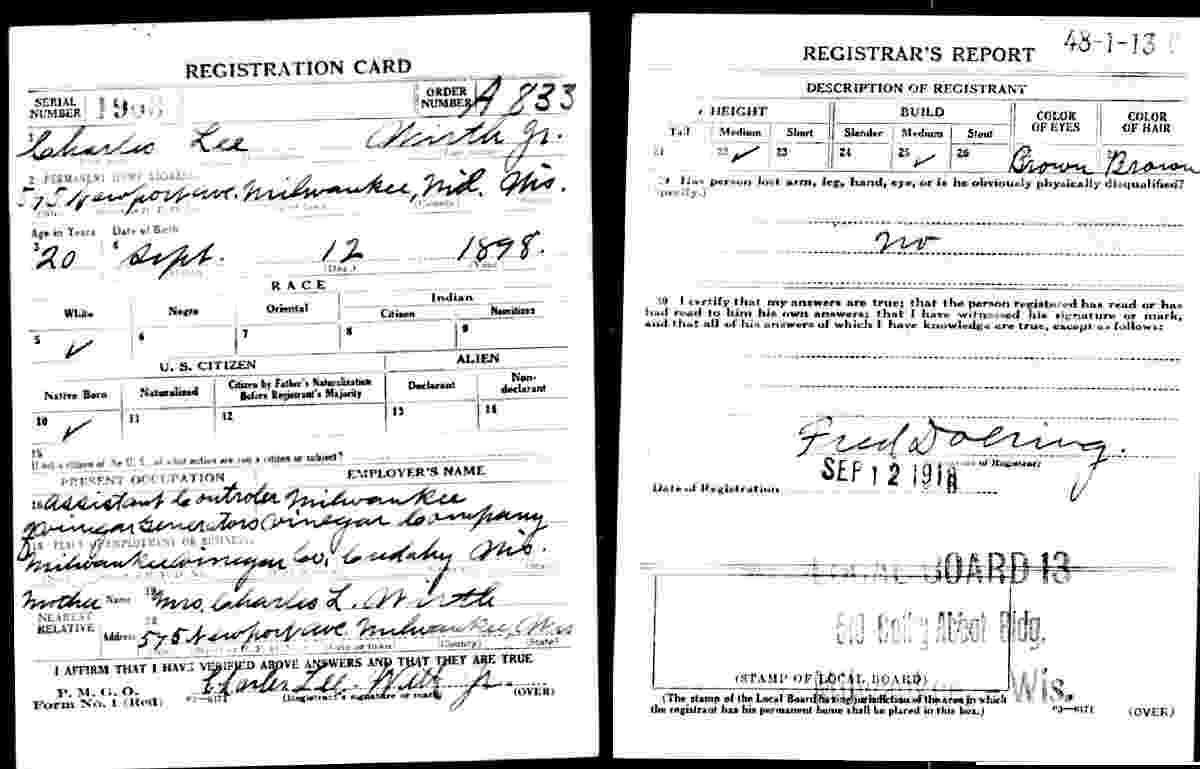 REGISTRATION CARD
SERIAL NUMBER
ORDER NUMBER A 833
Charles Lee Wirth Jr.
2 PERMANENT HOME ADDRESS
575 Newport ave. Milwaukee, Mil. Wis.
(County)
Age in Years Date of Birth
3 4
20 Sept. 12 1898.
(Day.) (Year)
RACE
White Negro Oriental Indian
Citizen Noncitizen
5 ✓ 6 7 8 9
U. S. CITIZEN ALIEN
Native Born Naturalized Citizen by Father's Naturalization Before Registrant's Majority Declarant Non-declarant
10 ✓ 11 12 13 14
15
If not a citizen of the U. S., of what nation are you a citizen or subject?
PRESENT OCCUPATION EMPLOYER'S NAME
16 assistant Controler Milwaukee
vinegar Generators vinegar Company
PLACE OF EMPLOYMENT OR BUSINESS
Milwaukee vinegar Co. Cudahy Wis.
Mother Name 19 Mrs. Charles L. Wirth
NEAREST RELATIVE
Address 575 Newport ave. Milwaukee, Wis
(City or town) (County) (State)
I AFFIRM THAT I HAVE VERIFIED ABOVE ANSWERS AND THAT THEY ARE TRUE
P. M. G. O.
Form No. 1 (Red) 03—6171 Charles Lee Wirth Jr.
(Registrant's signature or mark) (OVER)
REGISTRAR'S REPORT 48-1-13
DESCRIPTION OF REGISTRANT
HEIGHT BUILD COLOR OF EYES COLOR OF HAIR
Tall Medium Short Slender Medium Stout
21 22 ✓ 23 24 25 ✓ 26 Brown Brown
29 Has person lost arm, leg, hand, eye, or is he obviously physically disqualified?
(Specify.)
no
30 I certify that my answers are true; that the person registered has read or has
had read to him his own answers; that I have witnessed his signature or mark,
and that all of his answers of which I have knowledge are true, except as follows:
Fred Doering.
(Signature of Registrar)
Date of Registration SEP 12 1918
LOCAL BOARD 13
Bldg,
Wis.
(STAMP OF LOCAL BOARD)
(The stamp of the Local Board having jurisdiction of the area in which
the registrant has his permanent home shall be placed in this box.)
03—6171 (OVER)